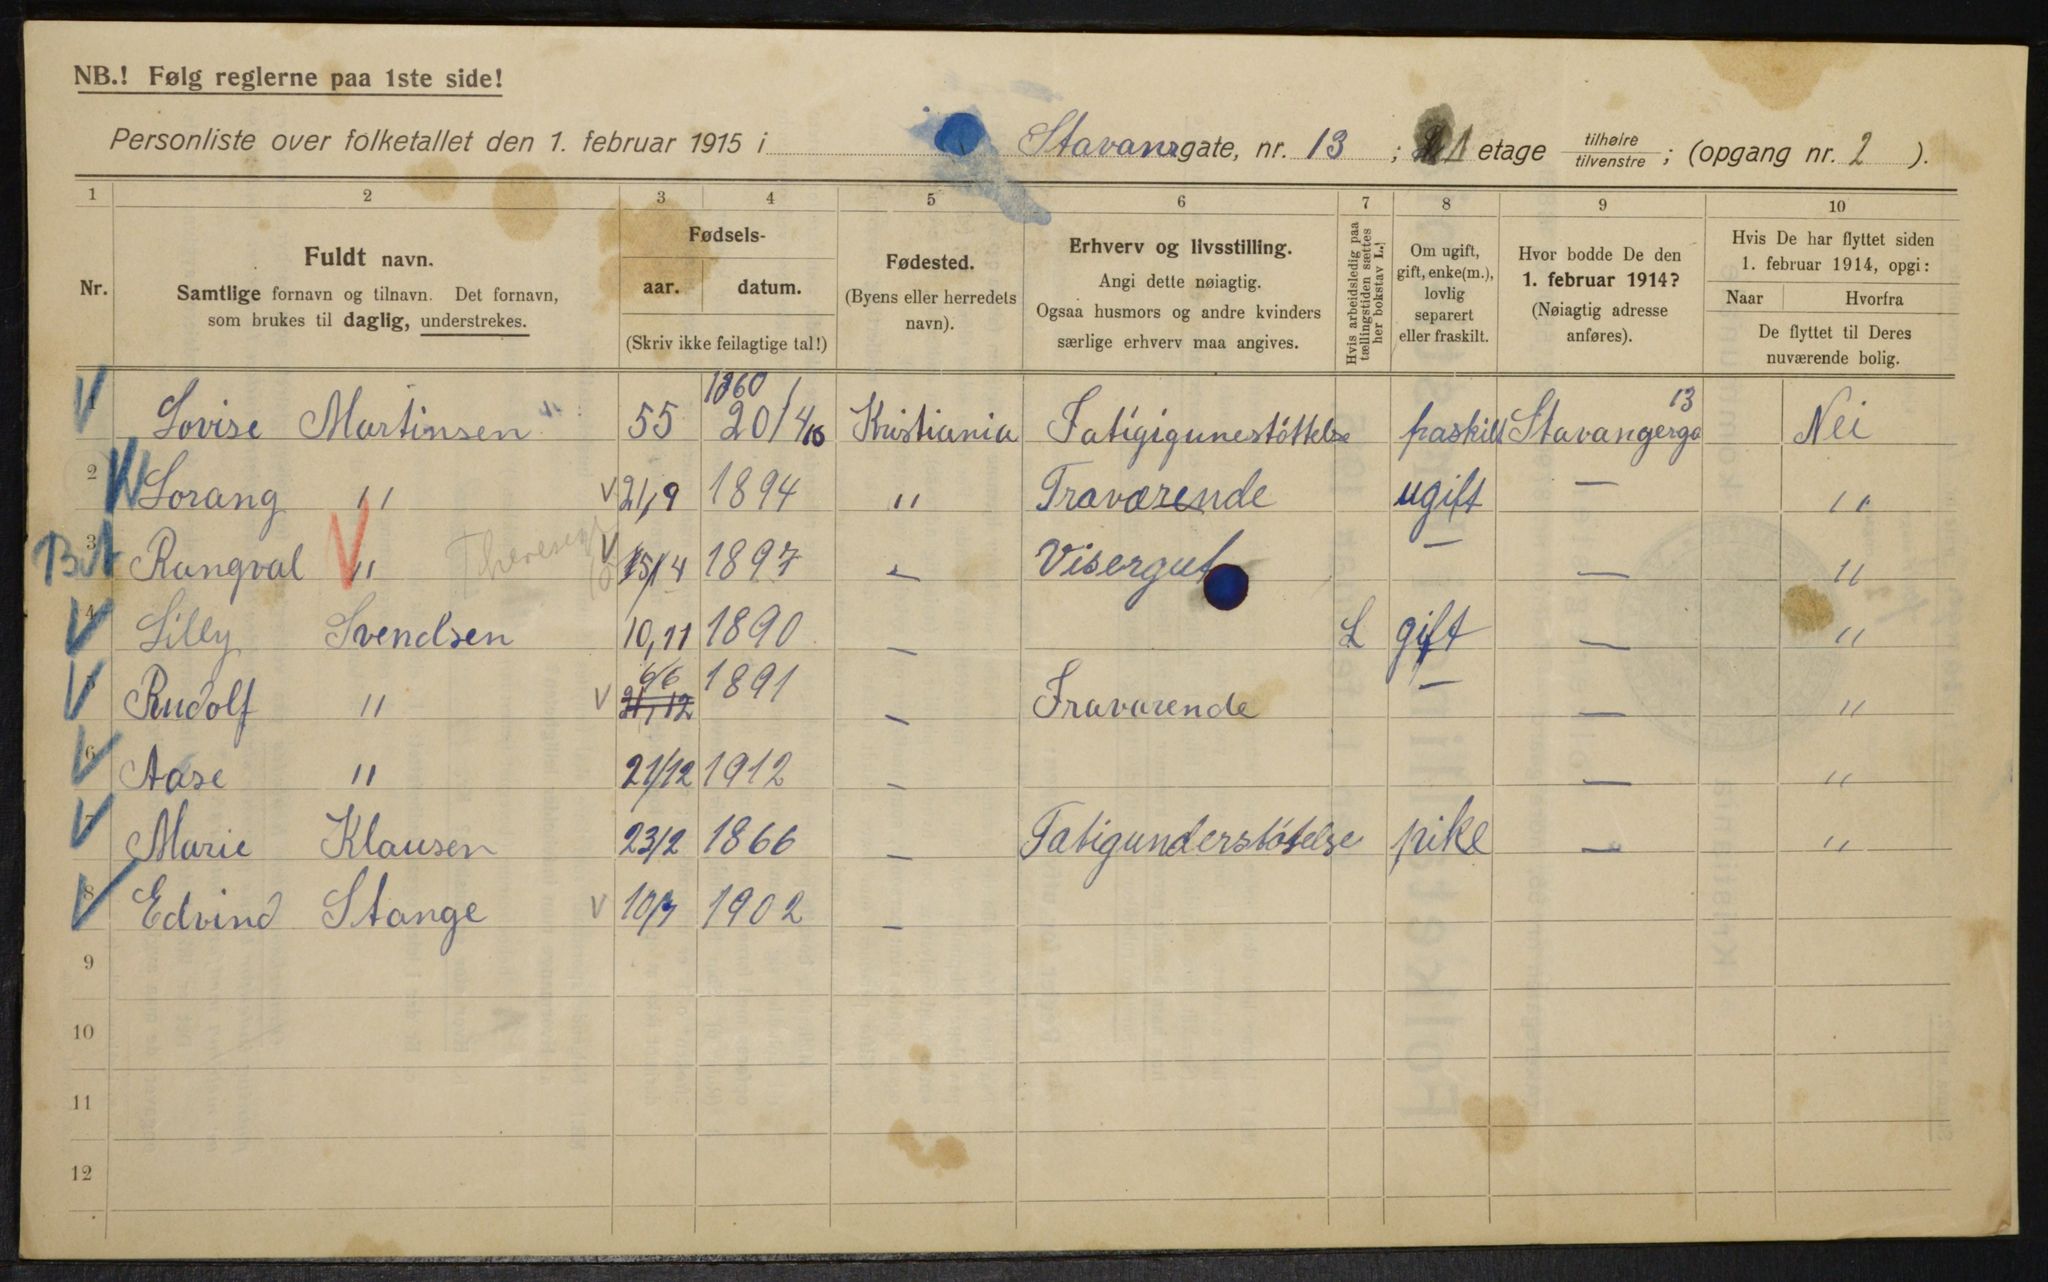 NB.! Følg reglerne paa 1ste side!
Personliste over folketallet den 1. februar 1915 i Stavanrgate, nr. 13 ; 1 etage tilhøire tilvenstre ; (opgang nr. 2 ).
1 2 3 4 5 6 7 8 9 10
Nr.
Fuldt navn.
Samtlige fornavn og tilnavn. Det fornavn,
som brukes til daglig, understrekes.
Fødsels-
aar. datum.
(Skriv ikke feilagtige tal!)
Fødested.
(Byens eller herredets
navn).
Erhverv og livsstilling.
Angi dette nøiagtig.
Ogsaa husmors og andre kvinders
særlige erhverv maa angives.
Hvis arbeidsledig paa
tællingstiden sættes
her bokstav L.!
Om ugift,
gift, enke(m.),
lovlig
separert
eller fraskilt.
Hvor bodde De den
1. februar 1914?
(Nøiagtig adresse
anføres).
Hvis De har flyttet siden
1. februar 1914, opgi:
Naar Hvorfra
De flyttet til Deres
nuværende bolig.
1860 13
Lovise Martinsen 55 20/4 Kristiania Fatigigunestöttelse fraskilt Stavangerga Nei
2 Lorang " V 21,9 1894 " Fraværende ugift — "
3 Rangval " V 15/4 1897 — Visergut — — "
4 Lilly Svendsen 10,11 1890 — L gift — "
6/6
5 Rudolf " V 21,12 1891 — Fravarende — — "
6 Aase " 21/12 1912 — — "
7 Marie Klausen 23/2 1866 — Fatigunderstötelse pike — "
8 Edvind Stange V 10/7 1902 —
9
10
11
12